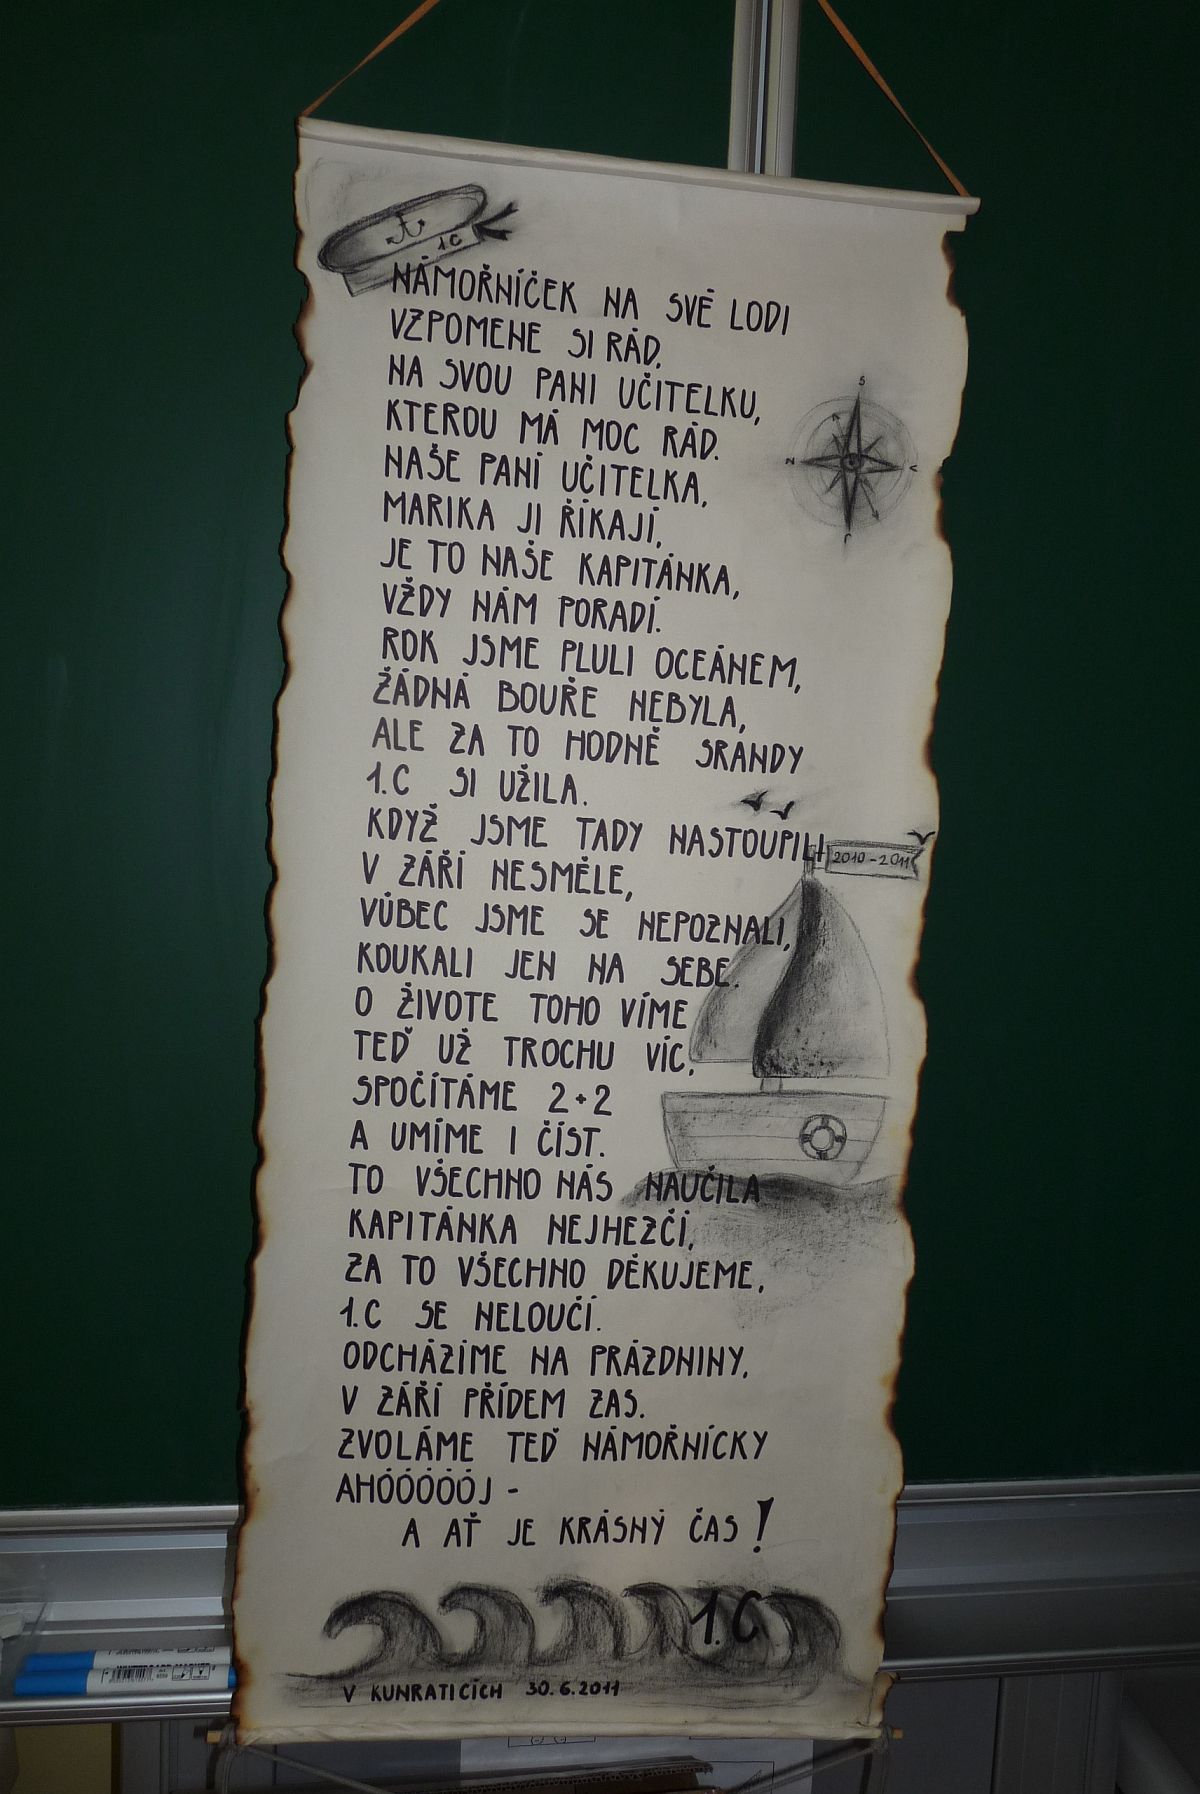 1.C
NÁMOŘNÍČEK NA SVÉ LODI
VZPOMENE SI RÁD,
NA SVOU PANI UČITELKU,
KTEROU MÁ MOC RÁD.
NAŠE PANÍ UČITELKA,
MARIKA JI ŘÍKAJÍ,
JE TO NAŠE KAPITÁNKA,
VŽDY NÁM PORADÍ.
ROK JSME PLULI OCEÁNEM,
ŽÁDNÁ BOUŘE NEBYLA,
ALE ZA TO HODNĚ SRANDY
1.C SI UŽILA.
KDYŽ JSME TADY NASTOUPILI
2010-2011
V ZÁŘÍ NESMĚLE,
VŮBEC JSME SE NEPOZNALI,
KOUKALI JEN NA SEBE.
O ŽIVOTE TOHO VÍME
TEĎ UŽ TROCHU VÍC,
SPOČÍTÁME 2+2
A UMÍME I ČÍST.
TO VŠECHNO NÁS NAUČILA
KAPITÁNKA NEJHEZČÍ,
ZA TO VŠECHNO DĚKUJEME,
1.C SE NELOUČÍ.
ODCHÁZÍME NA PRÁZDNINY,
V ZÁŘÍ PŘÍDEM ZAS.
ZVOLÁME TEĎ NÁMOŘNÍCKY
AHÓÓÓÓÓJ -
A AŤ JE KRÁSNÝ ČAS!
1.C
V KUNRATICÍCH 30.6.2011